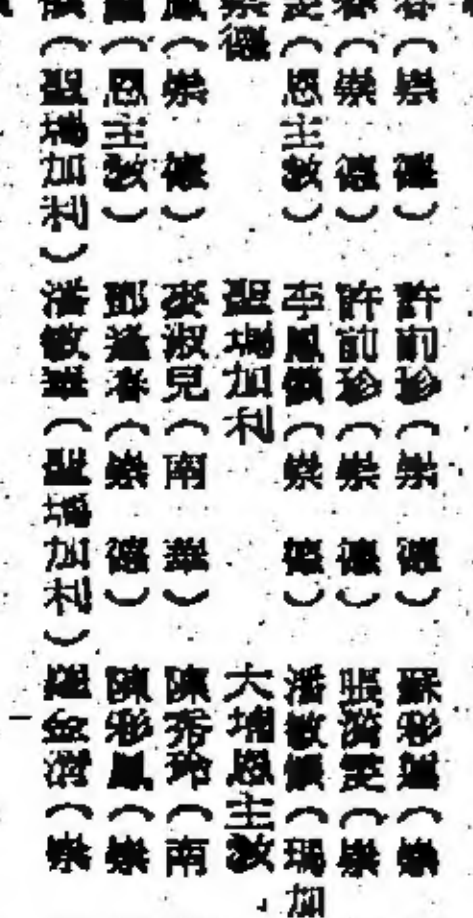 春(崇 德) 許前珍(崇 德) 蘇彩(崇
春(崇 德) 許前珍(崇 德) 張濟雯(崇
雯(恩主教) 李鳳(崇 德) 潘敏(瑪加
崇德 聖瑪加利 大埔恩主教
鳳(崇 德) 麥淑兒(南 華) 陳秀玲(南
(恩主教) 鄧逢春(崇 德) 陳彩鳳(崇
(聖瑪加利) 潘敏華(聖瑪加利) 羅金(崇